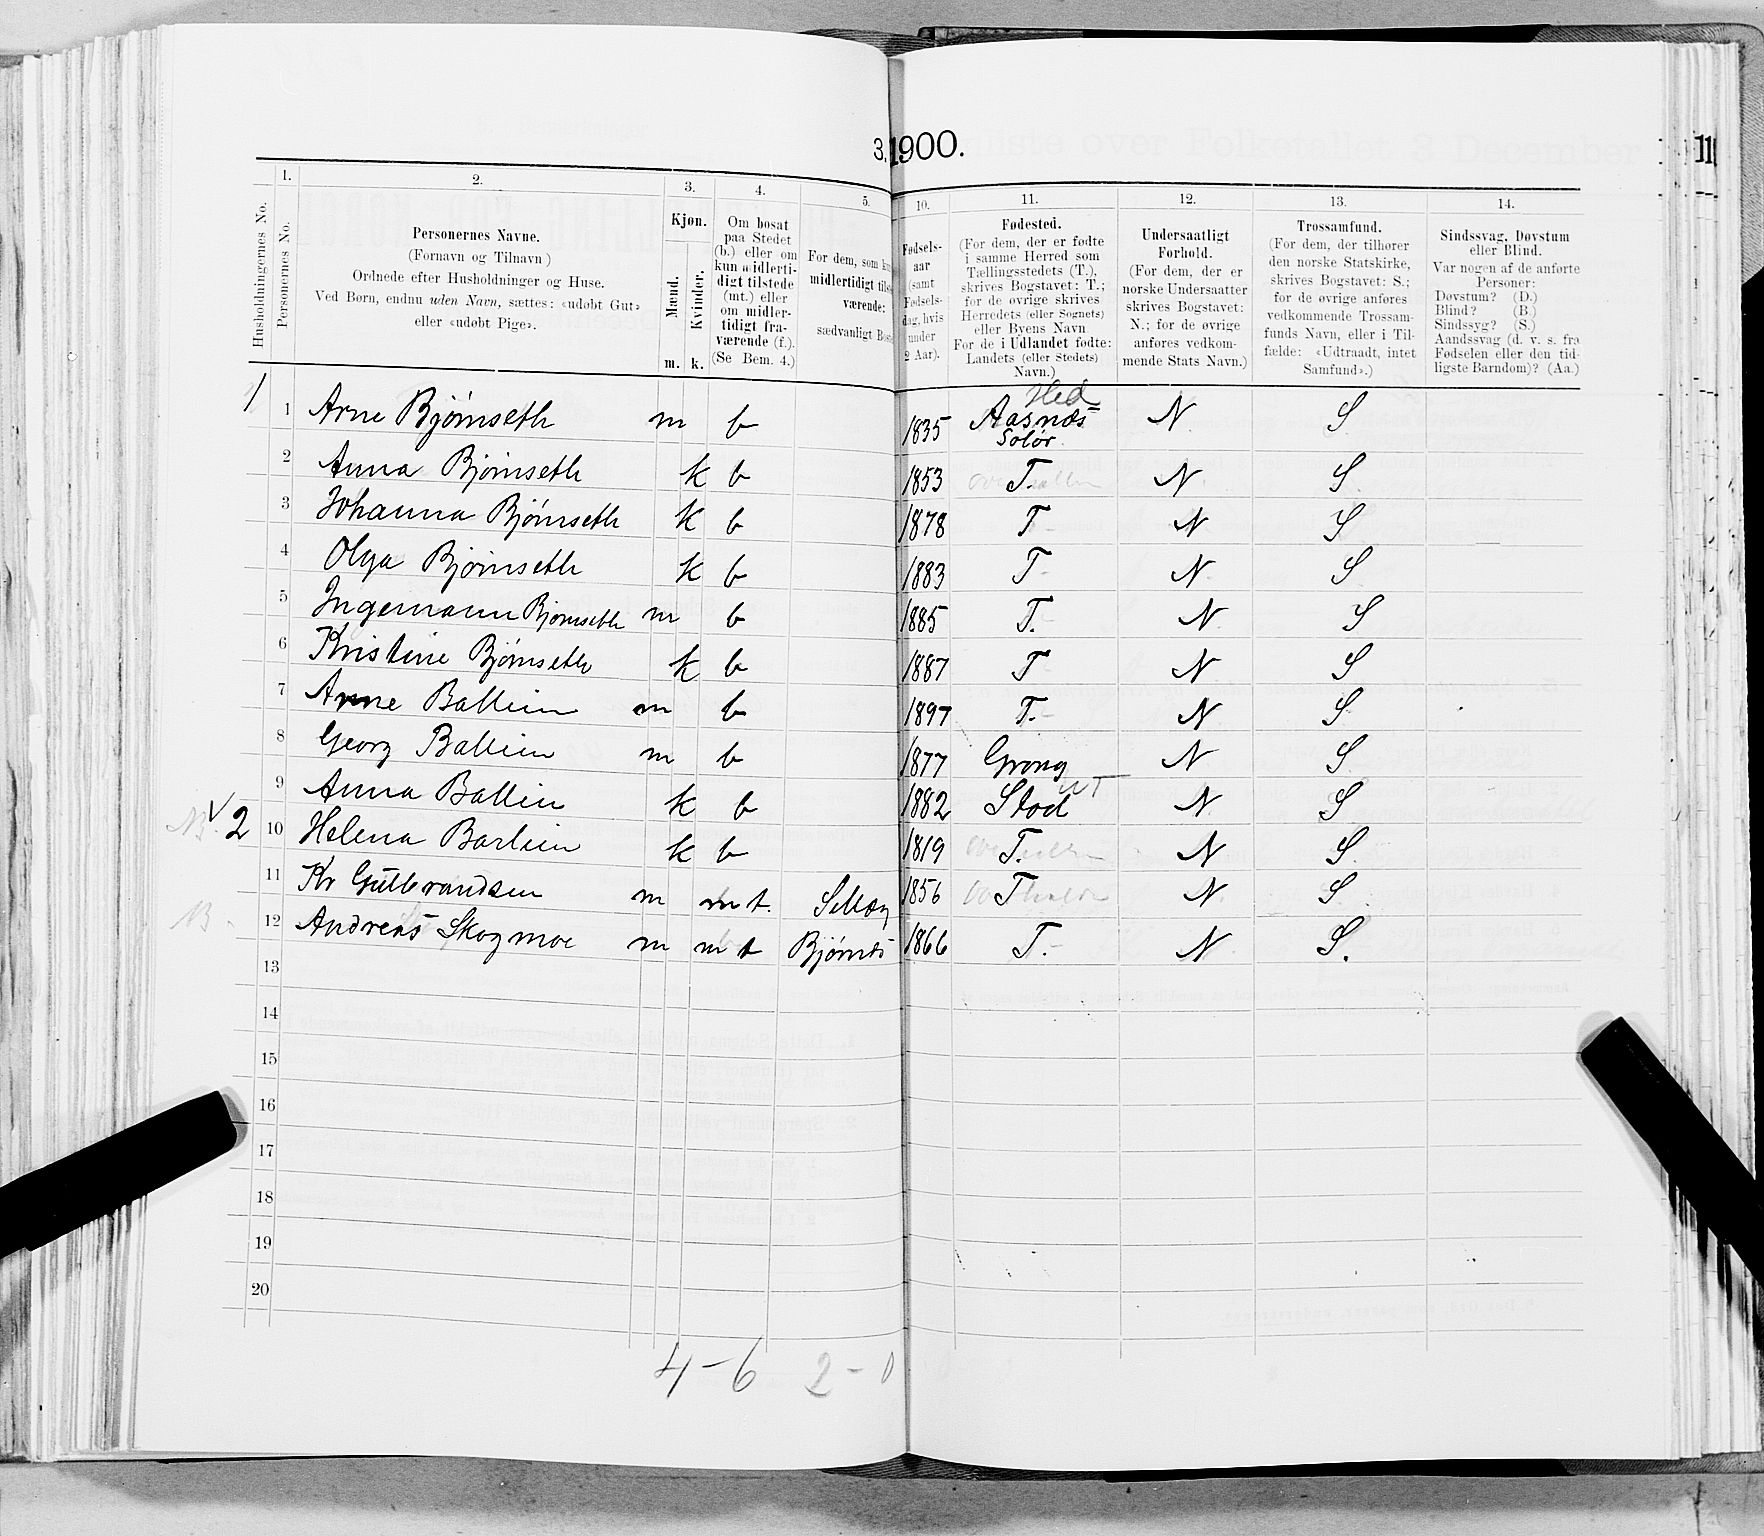 3. 1900.
11
Husholdningernes No.
1.
Personernes No.
2.
Personernes Navne.
(Fornavn og Tilnavn)
Ordnede efter Husholdninger og Huse.
Ved Børn, endnu uden Navn, sættes: «udøbt Gut»
eller «udøbt Pige».
3.
Kjøn.
Mænd.
Kvinder.
m. k.
4.
Om bosat
paa Stedet
(b.) eller om
kun midlerti-
digt tilstede
(mt.) eller
om midler-
tidigt fra-
værende (f.).
(Se Bem. 4.)
5.
For dem, som kun
midlertidigt tilste
værende:
sædvanligt Bosted
10.
Fødsels-
aar
(samt
Fødsels-
dag, hvis
under
2 Aar).
11.
Fødested.
(For dem, der er fødte
i samme Herred som
Tællingsstedets (T.),
skrives Bogstavet: T.;
for de øvrige skrives
Herredets (eller Sognets)
eller Byens Navn
For de i Udlandet fødte:
Landets (eller Stedets)
Navn.)
12.
Undersaatligt
Forhold.
(For dem, der er
norske Undersaatter
skrives Bogstavet:
N.; for de øvrige
anføres vedkom-
mende Stats Navn.)
13.
Trossamfund.
(For dem, der tilhører
den norske Statskirke,
skrives Bogstavet: S.;
for de øvrige anføres
vedkommende Trossam-
funds Navn, eller i Til-
fælde: «Udtraadt, intet
Samfund».)
14.
Sindssvag, Døvstum
eller Blind.
Var nogen af de anførte
Personer:
Døvstum? (D.)
Blind? (B.)
Sindssyg? (S.)
Aandssvag (d. v. s. fra
Fødselen eller den tid-
ligste Barndom)? (Aa.)
Hed
1 1 Arne Bjørnseth m b 1835 Aasnæs N S
Solør
2 Anna Bjørnseth k b 1853 T. N S
3 Johanna Bjørnseth k b 1878 T N S
4 Olga Bjørnseth k b 1883 T N S
5 Ingemann Bjørnseth m b 1885 T. N S
6 Kristine Bjørnseth k b 1887 T N S
7 Arne Ballien m b 1897 T. N S
8 Georg Ballien m b 1877 Grong N S
9 Anna Ballien k b 1882 Stod NT N S
2 10 Helena Barlien k b 1819 T. N S.
11 Kr Gulbrandsen m mt. 1856 T N S
12 Andreas Skogmoe m mt Bjørnes 1866 T. N S.
13
14
15
16
17
18
19
20
4 - 6 2 - 0